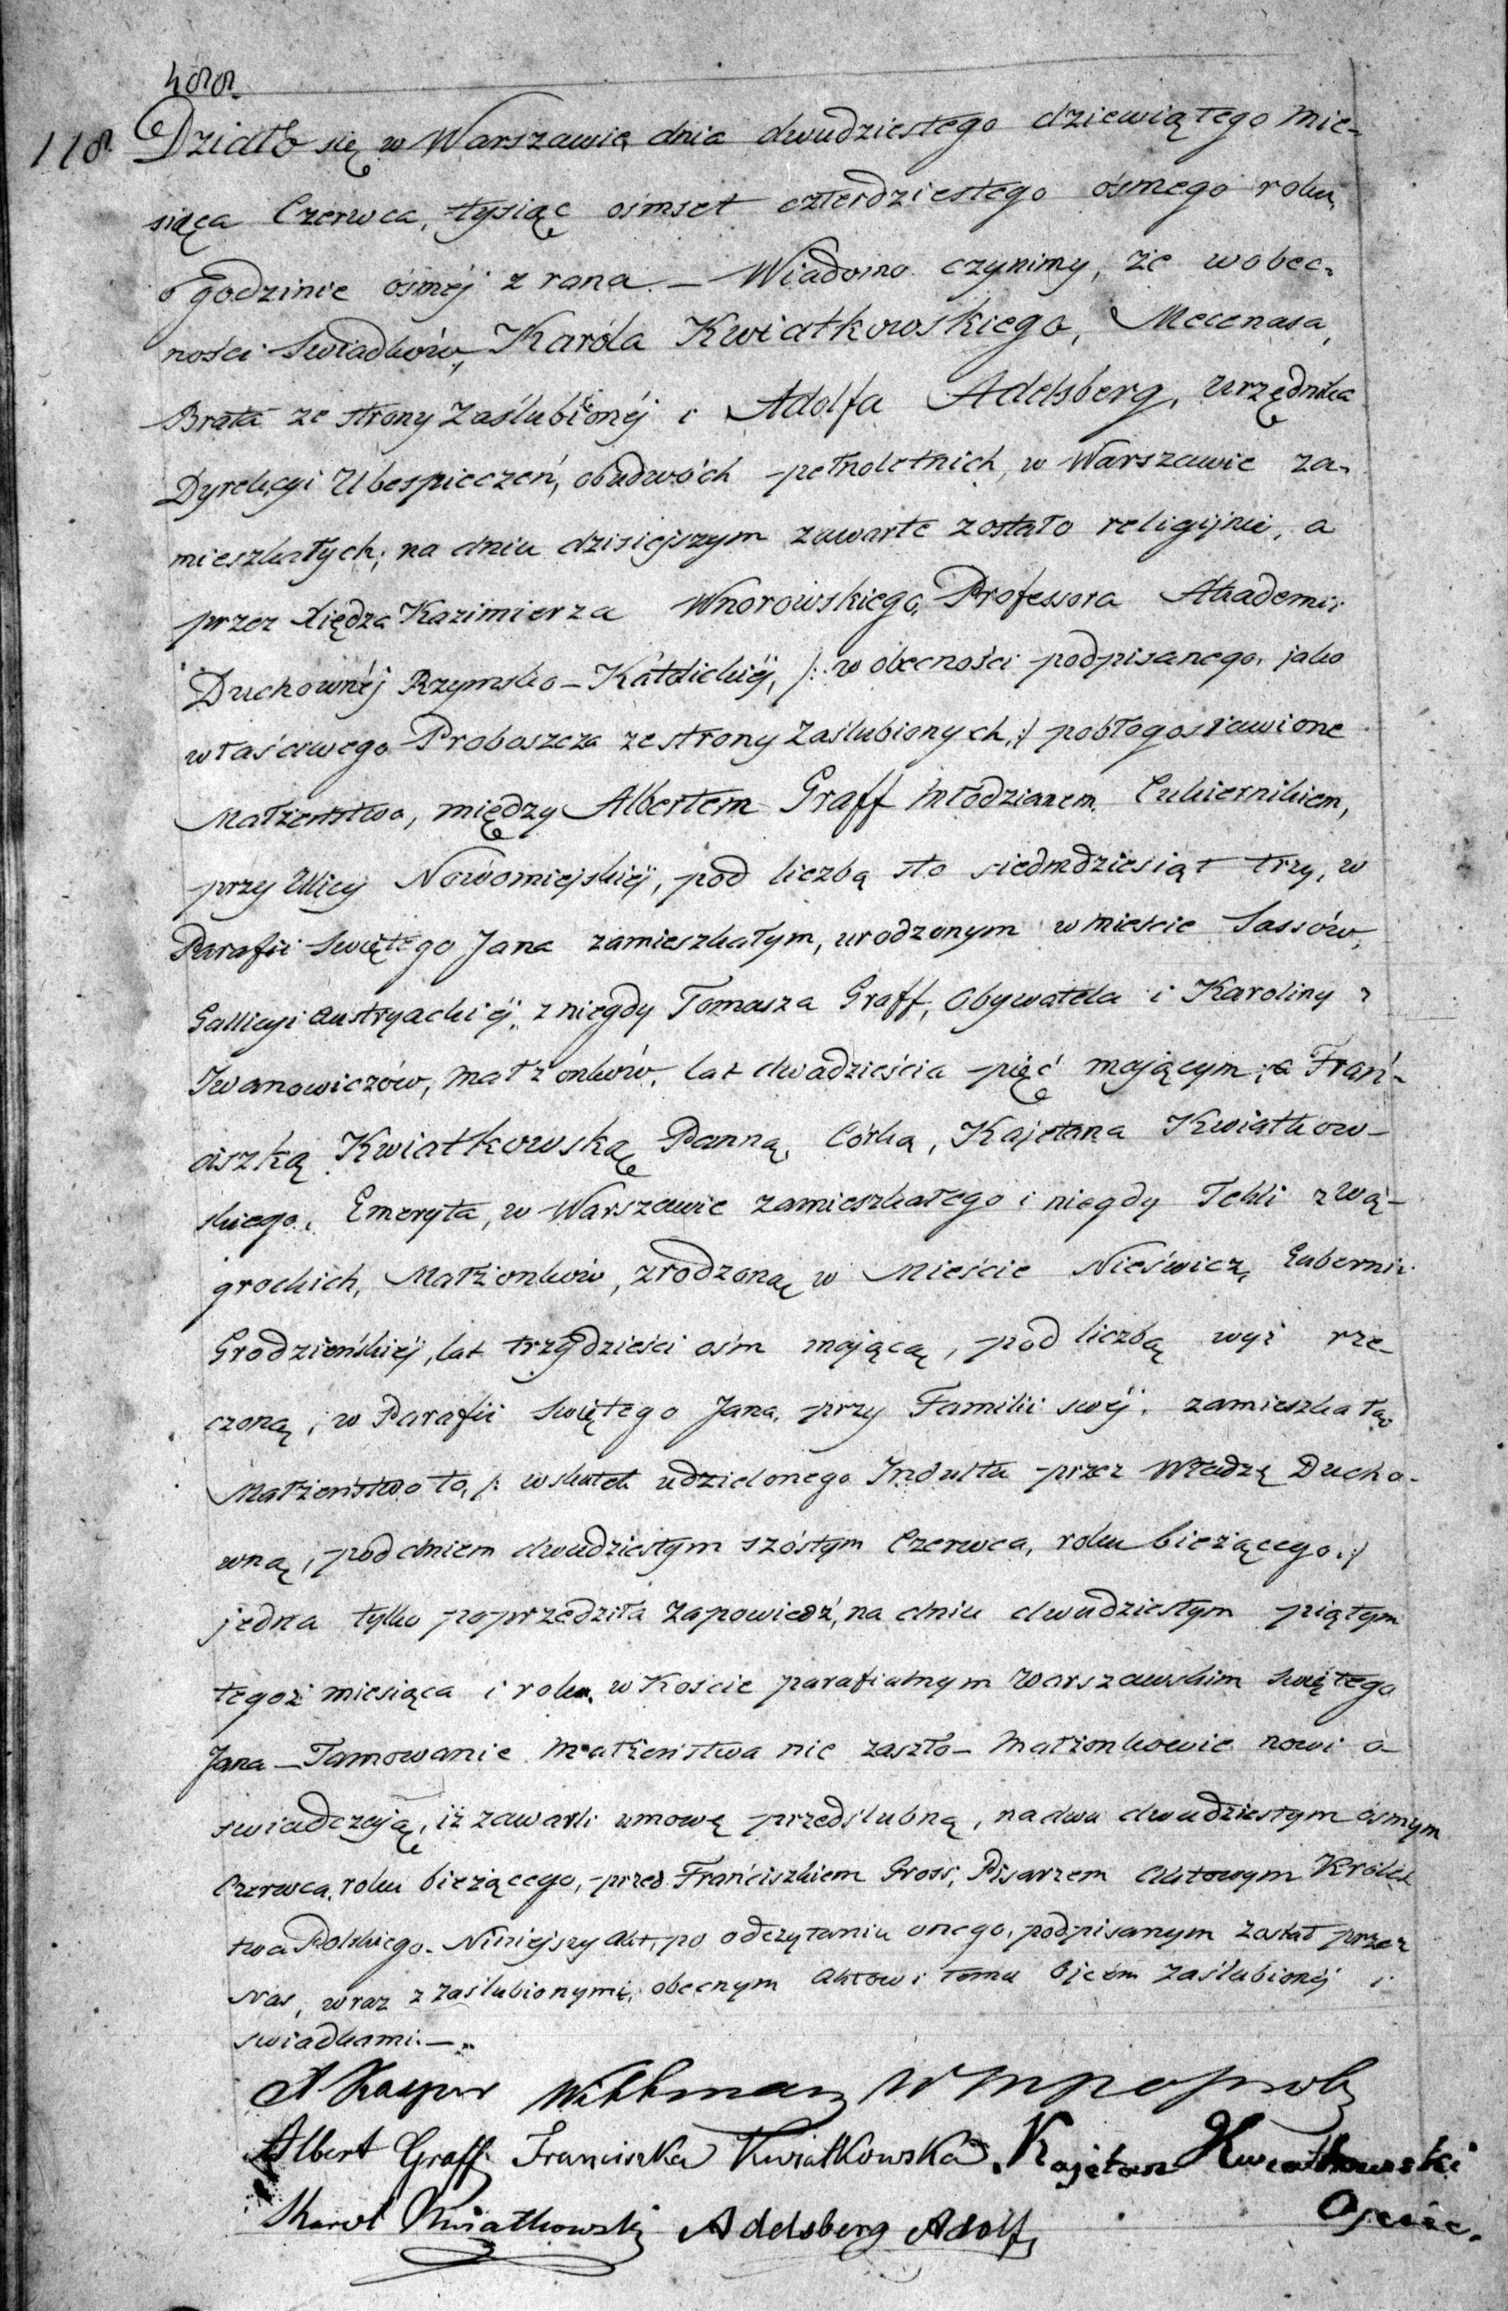 488.
118. Działo się w Warszawie dnia dwudziestego dziewiątego Mie-
siąca Czerwca, tysiąc ośmset czterdziestego ósmego roku,
o godzinie ósméj z rana. — Wiadomo czynimy, że w obec-
ności Swiadków, Karóla Kwiatkowskiego, Mecenasa,
Brata ze strony Zaślubionéj i Adolfa Adelsberg, Urzędnika
Dyrekcyi Ubespieczeń, obudwóch pełnoletnich, w Warszawie za-
mieszkałych; na dniu dzisiejszym zawarte zostało religijnie, a
przez Xiędza Kazimierza Wnorowskiego, Professora Akademii
Duchownéj Rzymsko-Katolickiéj, /: w obecności podpisanego, jako
właściwego Proboszcza ze strony Zaślubionych, :/ pobłogosławione
Małżeństwo, między Albertem Graff Młodzianem, Cukiernikiem,
przy Ulicy Nowomiejskiéj, pod liczbą sto siedmdziesiąt trzy, w
Parafii Świętego Jana zamieszkałym, urodzonym w mieście Sassów,
Gallicyi Austryackiéj, z niegdy Tomasza Graff, Obywatela i Karoliny z
Iwanowiczów, Małżonków, lat dwadzieścia pięć mającym; a Frań-
ciszką Kwiatkowską Panną, Córką, Kajetana Kwiatkow-
skiego, Emeryta, w Warszawie zamieszkałego i niegdy Tekli z Wą-
grockich, Małżonków, zrodzoną w Mieście Nieświczą Gubernii
Grodzieńskiéj, lat trzydzieści ośm mającą, pod liczbą wyż rze-
czoną, w Parafii Świętego Jana, przy Familii swéj, zamieszkałą
Małżeństwo to, /: wskutek udzielonego Indultu przez Władzę Ducho-
wną, pod dniem dwudziestym szóstym Czerwca, roku bieżącego, :/
jedna tylko poprzedziła zapowiedź, na dniu dwudziestym piątym
tegoż miesiąca i roku, w Koście parafialnym Warszawskim Świętego
Jana — Tamowanie Małżeństwa nie zaszło — Małżonkowie nowi o-
swiadczają, iż zawarli umowę przedślubną, na dniu dwudziestym ósmym
Czerwca, roku bieżącego, przed Frańciszkiem Gross, Pisarzem Aktowym Króles-
twa Polskiego. Niniejszy Akt, po odczytaniu onego, podpisanym został przez
Nas, wraz z zaślubionymi, obecnym Aktowi temu Ojcem Zaślubionéj i
świadkami. —
X Kacper
Albert Graff Franciszka Kwiatkowska Kajetan Kwiatkowski
Ojciec.
Karol Kwiatkowski Adelsberg Adolf